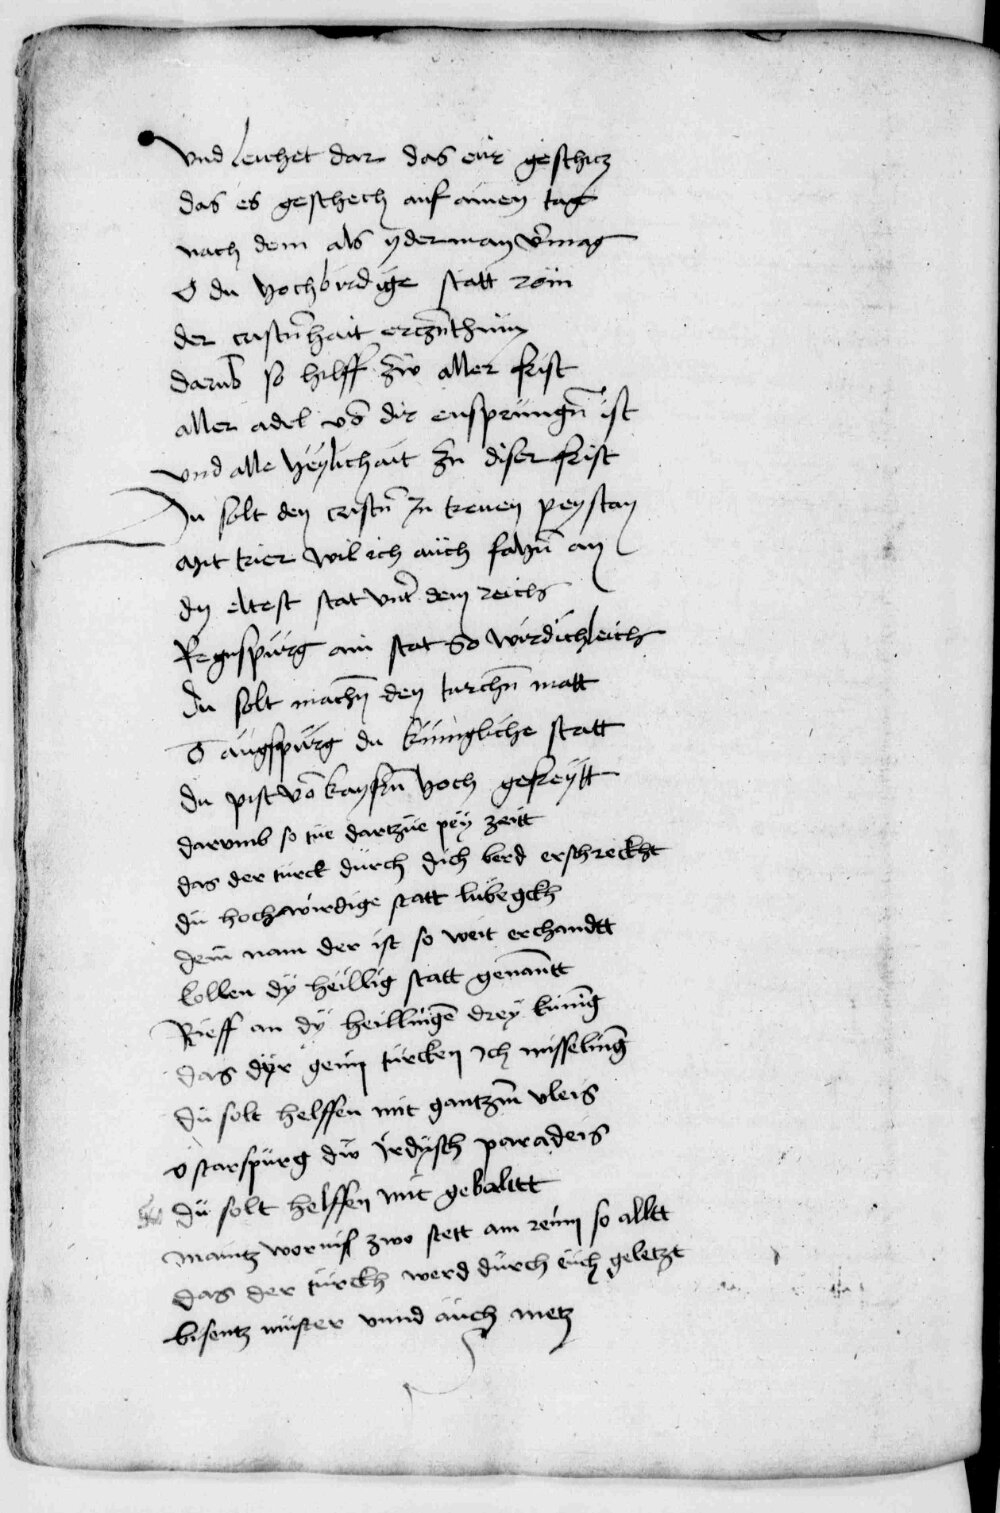 Vnd leichet dar das eür geschicz
das es geschech auf ainen tag
nach dem als yderman v̄mag
O du hochbirdige statt röm
der cristn̄hait erczn̄thüm
darūb so hilff zw̄ aller frist
aller adel vō dir ensprüngn̄ ist
vnd alle heylichait zu diser frist
Du solt den cristn̄ In treuen peystan
Mit trier wil ich aüch fahn̄ an
dy eltest stat vnt̄ dem reichs
Regnspürg ain stat So wirdichleichs
Du solt machn̄ den türchn̄ matt
O aügspürg du künigliche statt
du pist vō kaysn̄ hoch gefreytt
darvmb so tüe dartzüe pey zeitt
das der türck dürch dich berd erschreckht
dü hochwirdige statt lübegckh
dein nam der ist so weit erchandtt
kollen dÿ heillig statt genantt
Rieff an dÿ heillingē dreÿ küning
das dÿr gein türcken Ich misseling
dü solt helffen mit gantzm̄ vleis
o starspürg dw̄ Irdÿsch paradeis
dü solt helffen mit gebalttt
Maintz wormſ zwo stett am rein so alltt
das der türckh werd dürch eüch geletzt
bisentz müster vnnd aüch metz